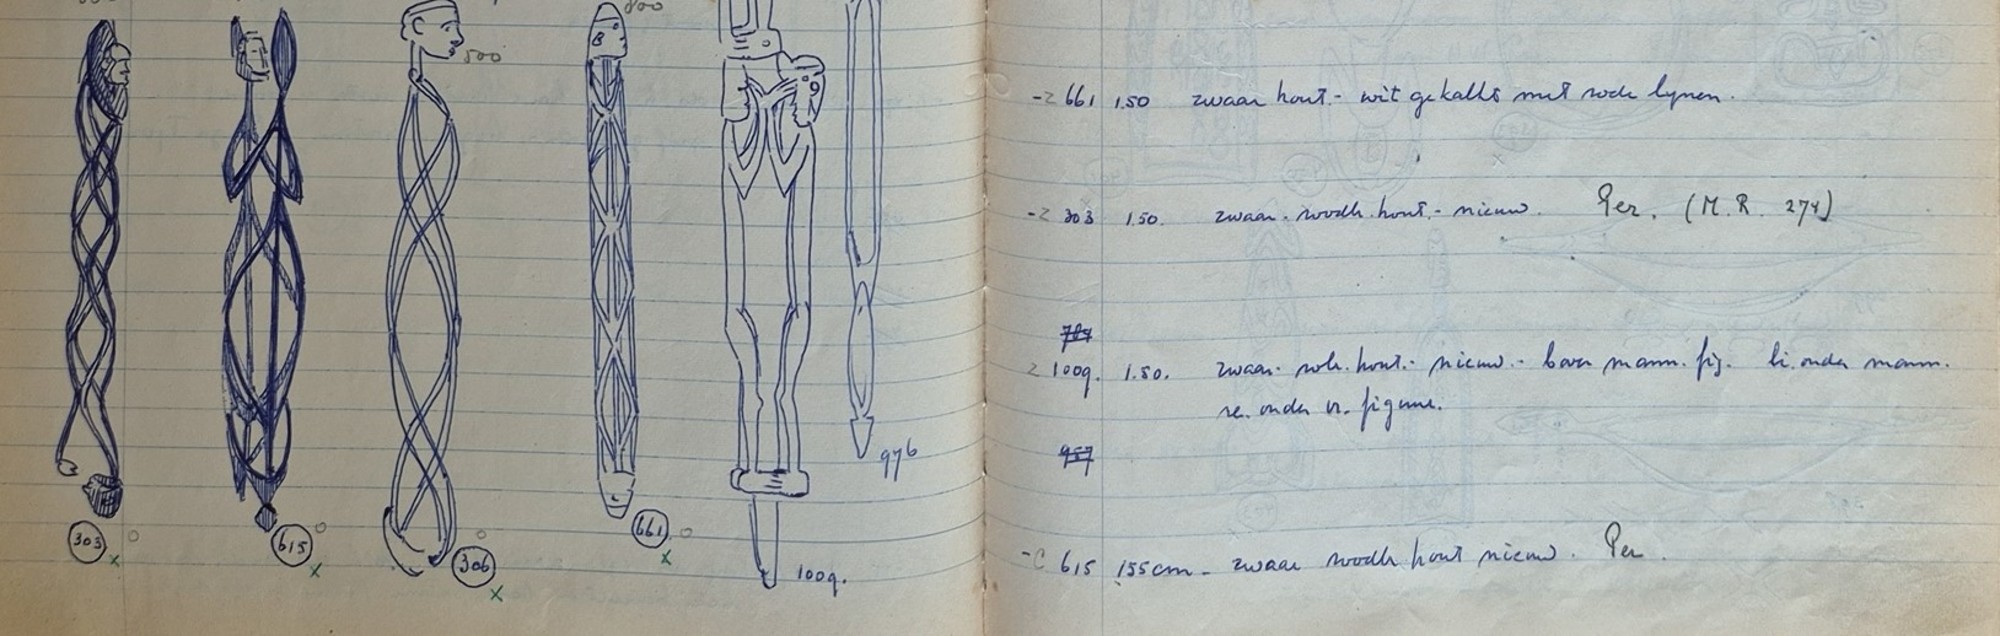 800
500
976
303
615
306
661
1009.
-z 661 1.50 zwaar hout.- wit gekalkt met rode lynen.
-z 303 1.50. zwaar. roodh. hout.- nieuw. Per. (M.R. 274)
787
z 1009. 1.50. zwaar. hout.- nieuw.- boven mann. fig. li. onder mann.
re. onder vr. figuur.
957
-c 615 155cm - zwaar roodh hout nieuw. Per.